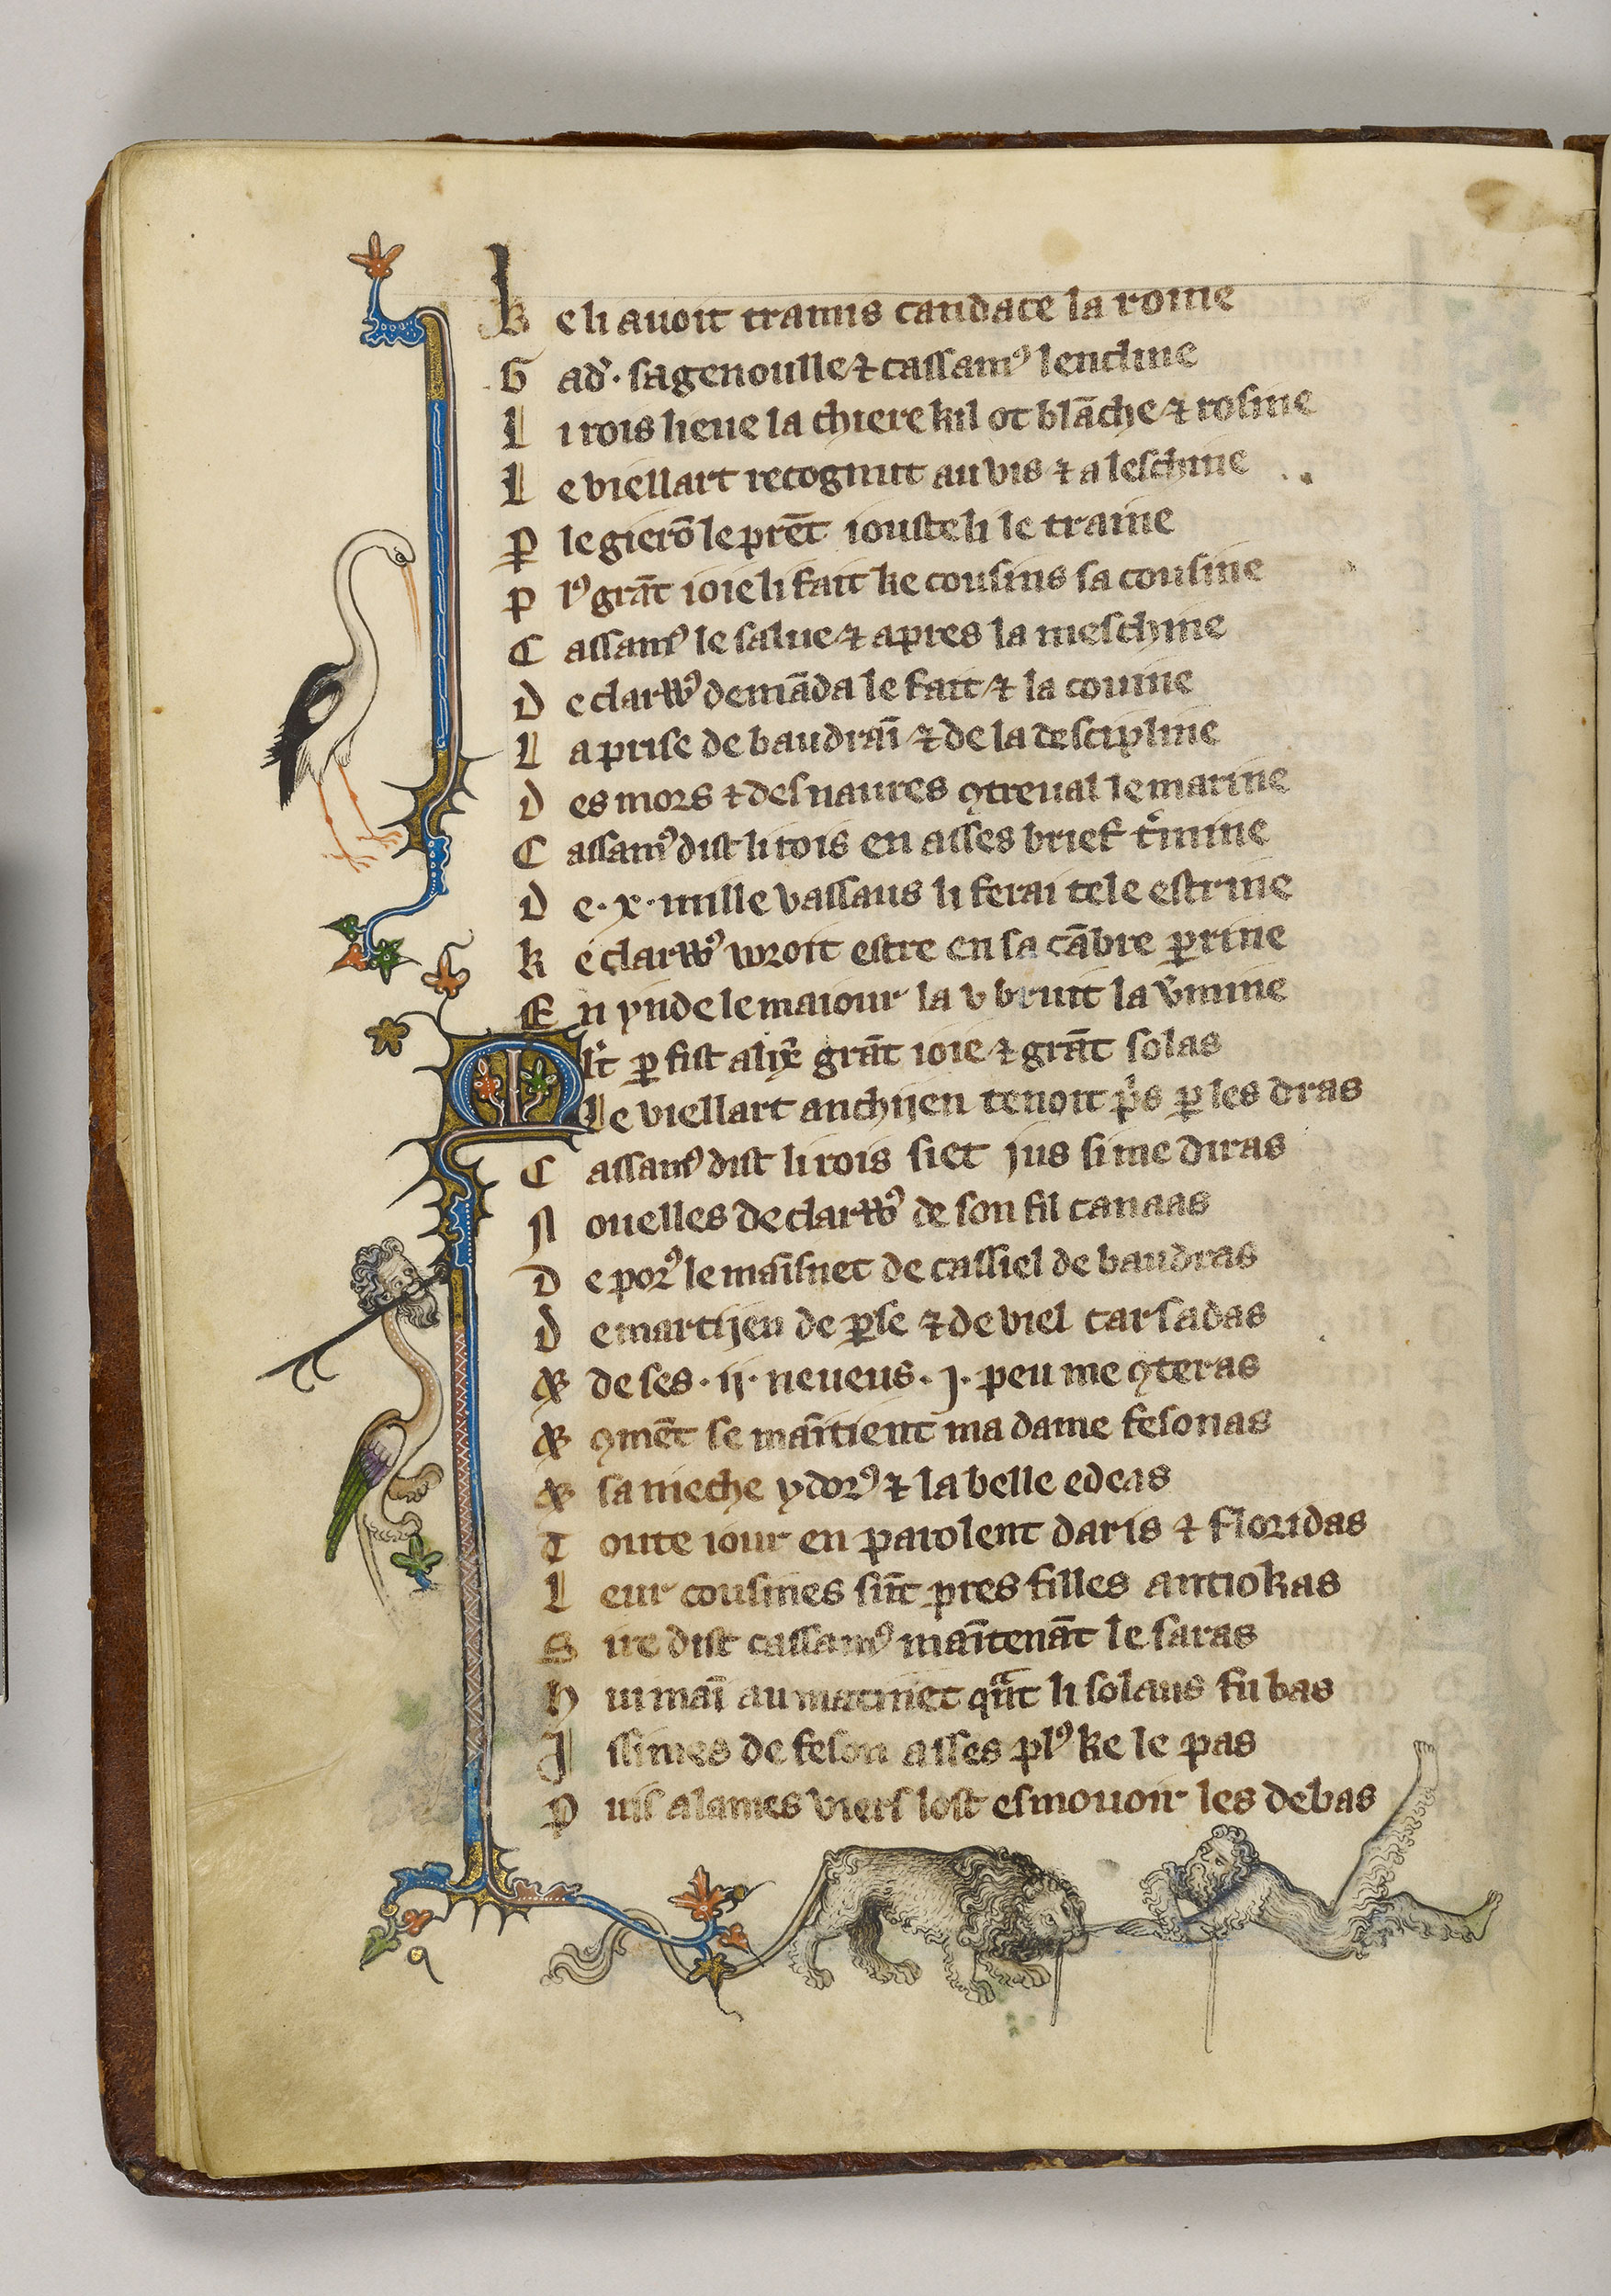 K e li auoit tramis candace la roine
G ad᷒· sagenoulle ⁊ cassamꝰ lencline
L i rois lieue la chiere kil ot blāche ⁊ rosine
L e viellart recognut au vis ⁊ a leschine
P le gierō le prēt iouste li le traine
P lꝰ grāt ioie li fait ke cousins sa cousine
C assamꝰ le salue ⁊ apres la meschine
D e clarꝰ demāda le fait ⁊ la couine
L a prise de baudraī ⁊ de la descipline
D es mors ⁊ des naures ꝯtreual le marine
C assamꝰ dist li rois en asses brief t᷒mine
D e · x · mille vassaus li ferai tele estrine
K e clarꝰ wroit estre en sa cābre perrine
E n ynde le maiour la v bruit la v᷒mine
M lt᷒ ꝑ fist alix̄ grāt ioie ⁊ grāt solas
L e viellart anchijen tenoit p᷒s ꝑ les dras
C assamꝰ dist li rois siet jus si me diras
N ouelles de clarꝰ de son fil canaas
D e porꝰ le maīsnet de cassiel de baudras
D e martijen de ꝑse ⁊ de viel carsadas
⁊ de ses · ij · neueus · j · peu me ꝯteras
⁊ ꝯmēt se maītient ma dame fesonas
⁊ sa nieche ydorꝰ ⁊ la belle edeas
T oute iour en parolent daris ⁊ floridas
L eur cousines sūt pres filles antiokas
S ire dist cassamꝰ maītenāt le saras
H ui maī au matinet qͣt li solaus fu bas
I ssimes de feson asses plꝰ ke le pas
P uis alames viers lost esmouoir les debas